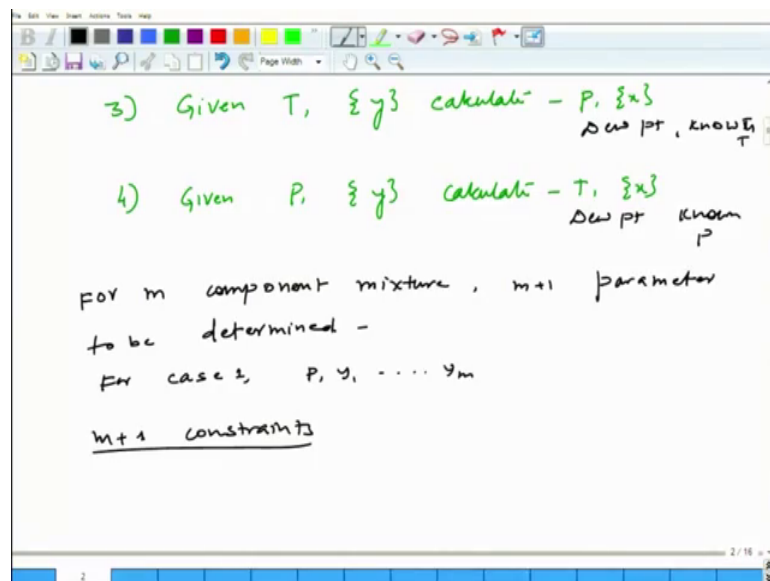 File Edit View Insert Actions Tools Help
B I
Page Width
3) Given T, {y} calculate - P, {x}
Dew pt, known T
4) Given P, {y} calculate - T, {x}
Dew pt known
P
For m component mixture, m+1 parameter
to be determined -
For case 1, P, y, .... ym
m+1 constraints
2 / 16
2